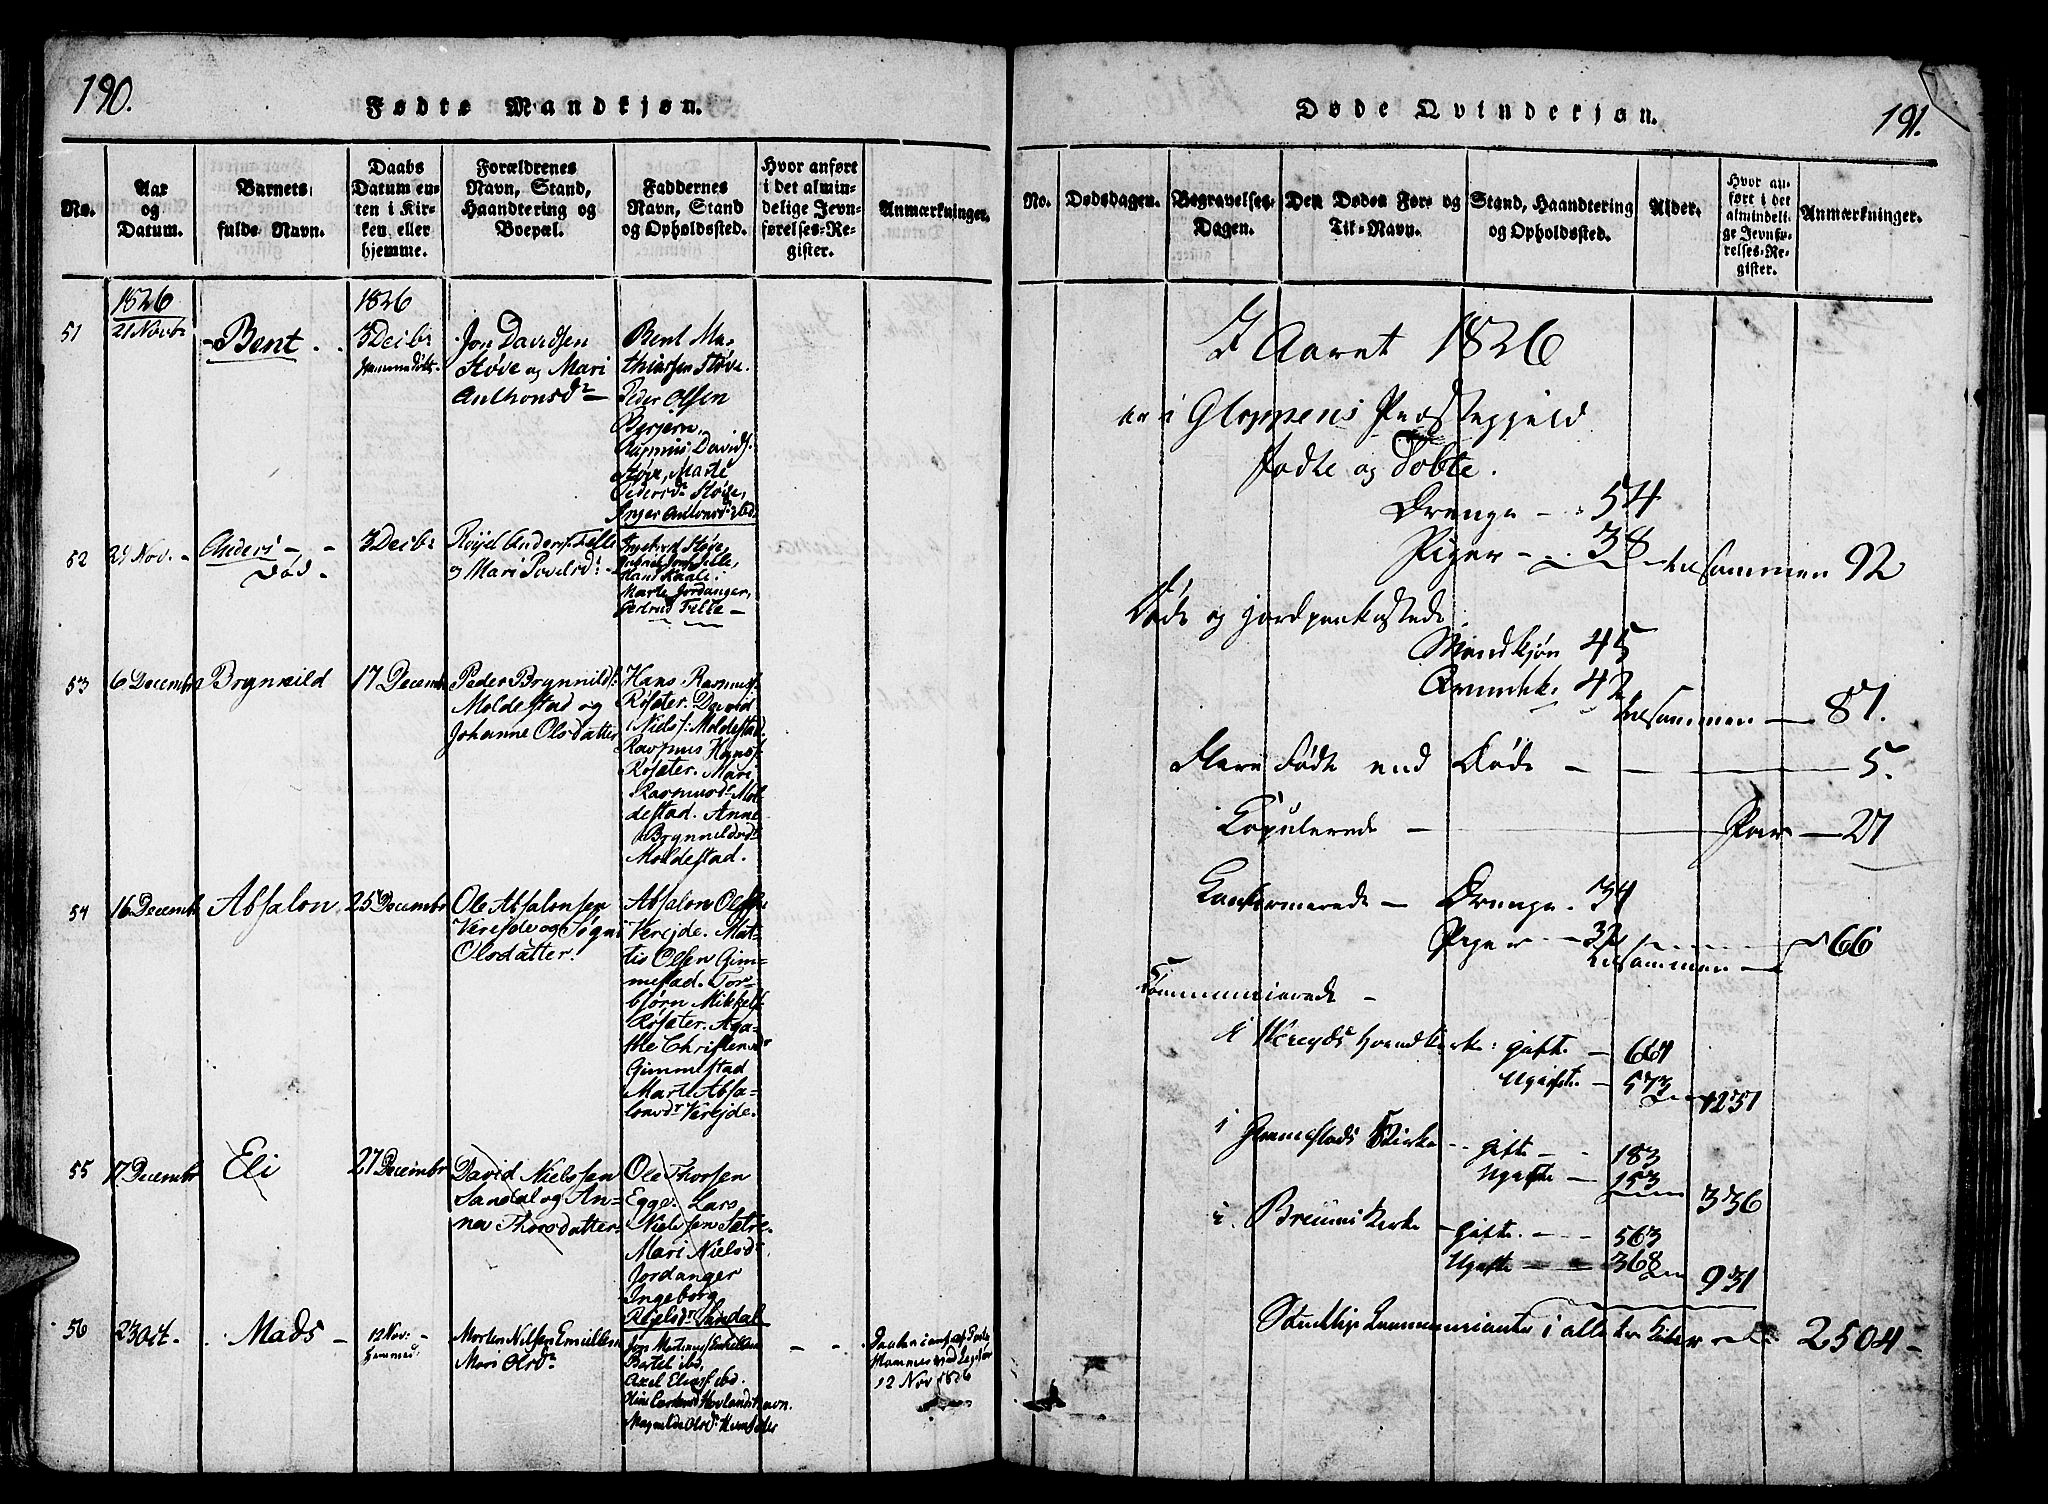 190.
Fødte Mandkjøn.
No.
Aar
og
Datum.
Barnets
fulde Navn.
Daabs
Datum en-
ten i Kir-
ken eller
hjemme.
Forældrenes
Navn, Stand,
Haandtering og
Boepæl.
Faddernes
Navn, Stand
og Opholdssted.
Hvor anført
i det almin-
delige Jevn-
førelses-Re-
gister.
Anmærkninger.
1826
51
21 Novbr
Bent
1826
3 Decbr
Jon Davidsen
Støve og Mari
Anthonsdr
Bent Ma-
thiassen Støve.
Peder Olsen
Rasmus Davids.
Støve, Marte
Pedersdr Støve,
Inger Antonsdr ibd.
52
29 Nov.
Anders
død
3 Decbr
Anders. Felle
og Mari Povelsdr
Støve,
Felle,
Hans
Marte Jordanger,
Gertrud Felle
53
6 Decembr
Brynnild
17 Decembr
Peder Brynnilds.
Moldestad og
Johanne Olsdatter
Hans Rasmus.
Røsæter. David
Niels. Moldestad.
Rasmus Hans.
Røsæter. Mari
Rasmusdr Mol-
destad. Anne
Brynnildsdr
Moldestad.
54
16 Decembr
Absalon
25 Decembr
Ole Absalonsen
Vereide og Søgni
Olsdatter.
Absalon Ols.
Vereide. Mat-
tis Olsen Gim-
mestad. Tor-
bjørn Mikkels.
Røsæter. Aga-
the Christensdr
Gimmestad
Marte Absa-
lonsdr Vereide.
55
17 Decembr
Eli
27 Decembr
David Nielssen
Sandal og An-
ne Thorsdatter
Ole Thorsen
Egge. Lars
Nielssen Sætre.
Mari Nielsdr
Jordanger
Ingeborg
Sandal
56
23 Oct.
Mads
12 Nov.
Morten Nilsen
Mari Olsdr
Jon Martinus
Bertel ibd.
Axel Elias. ibd.
Magnilde Olsdr
12 Nov 1826
191.
Døde Qvindekjøn.
No.
Dødsdagen.
Begravelses-
Dagen.
Den Dødes For- og
Til-Navn.
Stand, Haandtering
og Opholdssted.
Alder.
Hvor an-
ført i det
almindeli-
ge Jevnfø-
relses-Re-
gister.
Anmærkninger.
I Aaret 1826
er i Gloppens Præstegjeld
fødte og Døbte.
Drenge 54
Piger 38 tilsammen 92
Døde og jordpaakastede
Mandkjøn 45
Qvindek. 42
tilsammen 87.
Flere Fødte end Døde 5.
Copulerede Par 27
Confirmerede Drenge 34
Piger 32
tilsammen 66
Communicerede
i Vereyds Hovedkirke: gifte 664
Ugifte 573
i Gimmestads Kirke gifte 183
Ugifte 153
336
i Breims Kirke gifte 563
Ugifte 368
931
Samtlige Communicanter i alle tre Kirker 2504